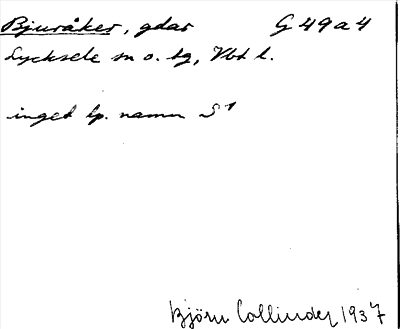 Bjuråker, gdar G 49 a 4
Lycksele sn o. tg, Vbt l.
inget lp. namn S¹
Björn Collinder 1937